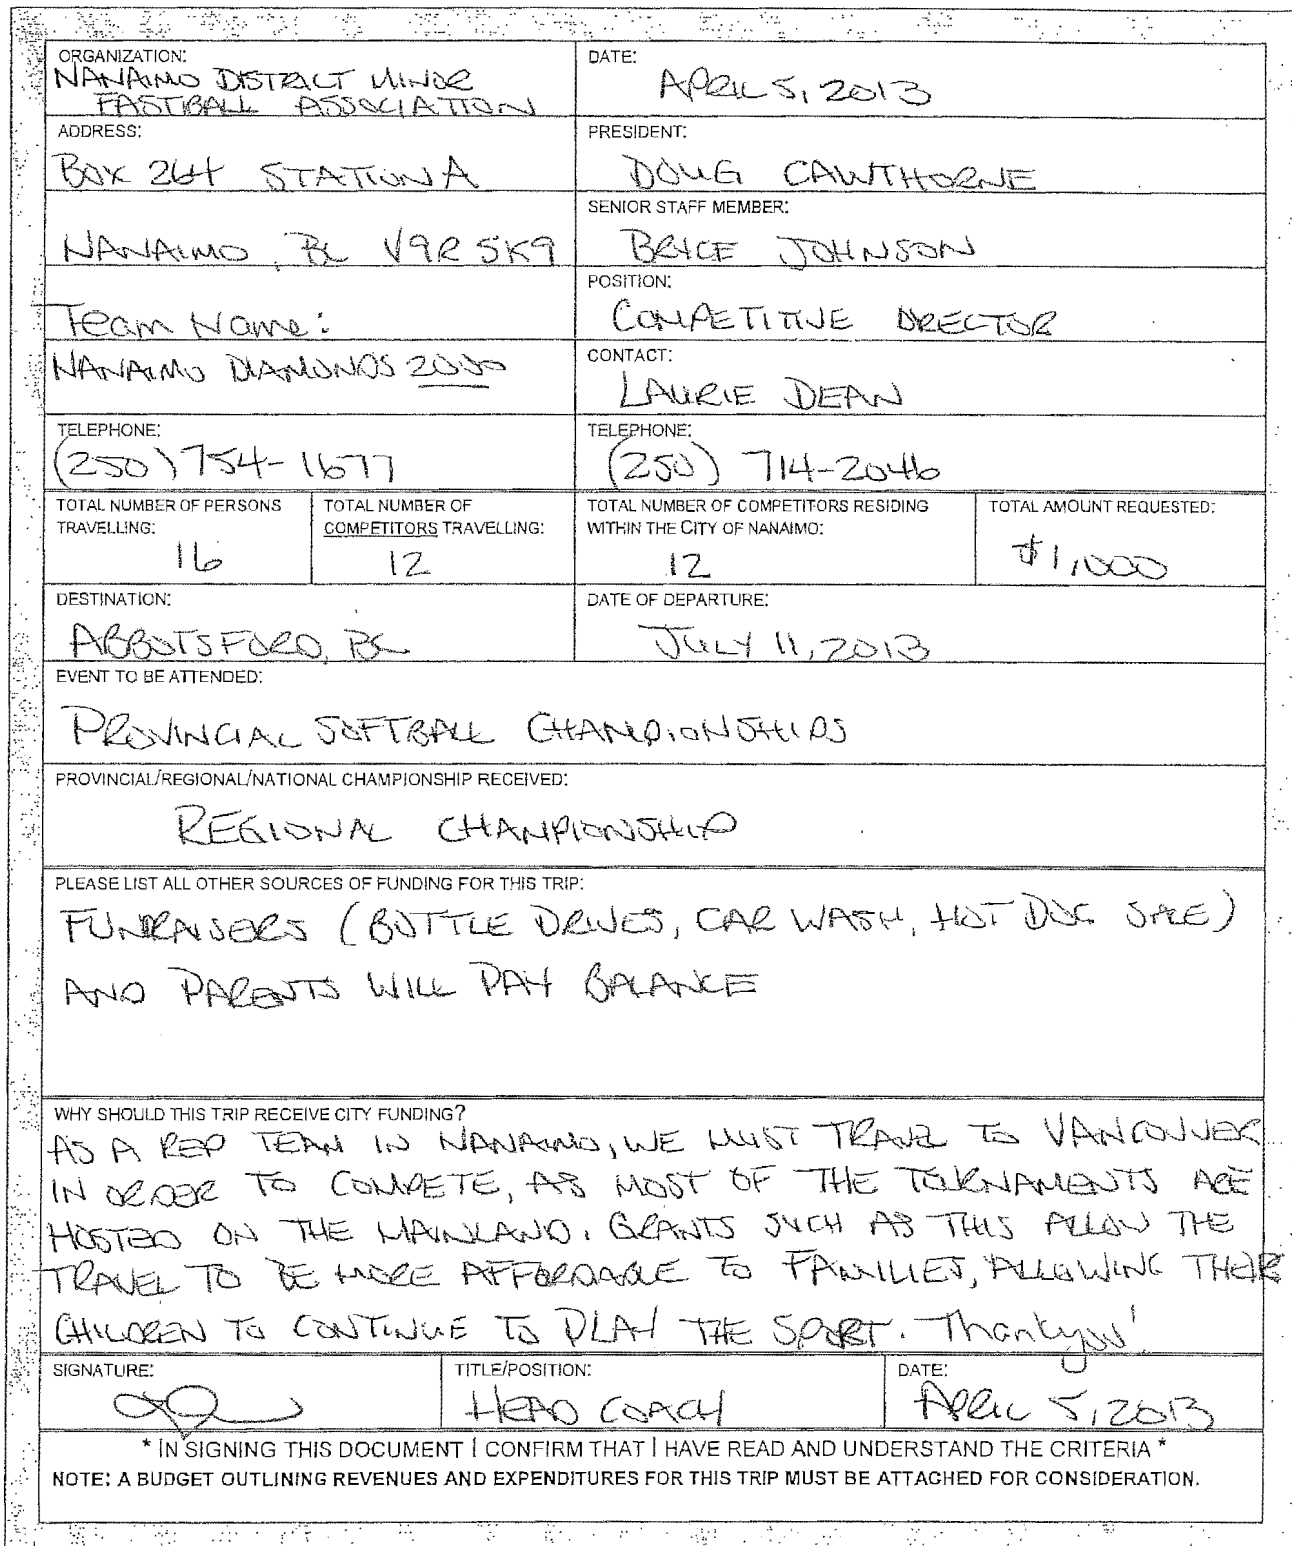 ORGANIZATION:
NANAIMO DISTRICT MINOR
FASTBALL ASSOCIATION
DATE:
APRIL 5, 2013
ADDRESS:
BOX 264 STATION A
PRESIDENT:
DOUG CAWTHORNE
NANAIMO, BC V9R 5K9
SENIOR STAFF MEMBER:
BRYCE JOHNSON
Team Name:
POSITION:
COMPETITIVE DIRECTOR
NANAIMO DIAMONDS 2000
CONTACT:
LAURIE DEAN
TELEPHONE:
(250) 754-1677
TELEPHONE:
(250) 714-2046
TOTAL NUMBER OF PERSONS
TRAVELLING:
16
TOTAL NUMBER OF
COMPETITORS TRAVELLING:
12
TOTAL NUMBER OF COMPETITORS RESIDING
WITHIN THE CITY OF NANAIMO:
12
TOTAL AMOUNT REQUESTED:
$1,000
DESTINATION:
ABBOTSFORD, BC
DATE OF DEPARTURE:
JULY 11, 2013
EVENT TO BE ATTENDED:
PROVINCIAL SOFTBALL CHAMPIONSHIPS
PROVINCIAL/REGIONAL/NATIONAL CHAMPIONSHIP RECEIVED:
REGIONAL CHAMPIONSHIP
PLEASE LIST ALL OTHER SOURCES OF FUNDING FOR THIS TRIP:
FUNDRAISERS (BOTTLE DRIVES, CAR WASH, HOT DOG SALE)
AND PARENTS WILL PAY BALANCE
WHY SHOULD THIS TRIP RECEIVE CITY FUNDING?
AS A REP TEAM IN NANAIMO, WE MUST TRAVEL TO VANCOUVER
IN ORDER TO COMPETE, AS MOST OF THE TOURNAMENTS ARE
HOSTED ON THE MAINLAND. GRANTS SUCH AS THIS ALLOW THE
TRAVEL TO BE MORE AFFORDABLE TO FAMILIES, ALLOWING THEIR
CHILDREN TO CONTINUE TO PLAY THE SPORT. Thankyou!
SIGNATURE:
TITLE/POSITION:
HEAD COACH
DATE:
APRIL 5, 2013
* IN SIGNING THIS DOCUMENT I CONFIRM THAT I HAVE READ AND UNDERSTAND THE CRITERIA *
NOTE: A BUDGET OUTLINING REVENUES AND EXPENDITURES FOR THIS TRIP MUST BE ATTACHED FOR CONSIDERATION.